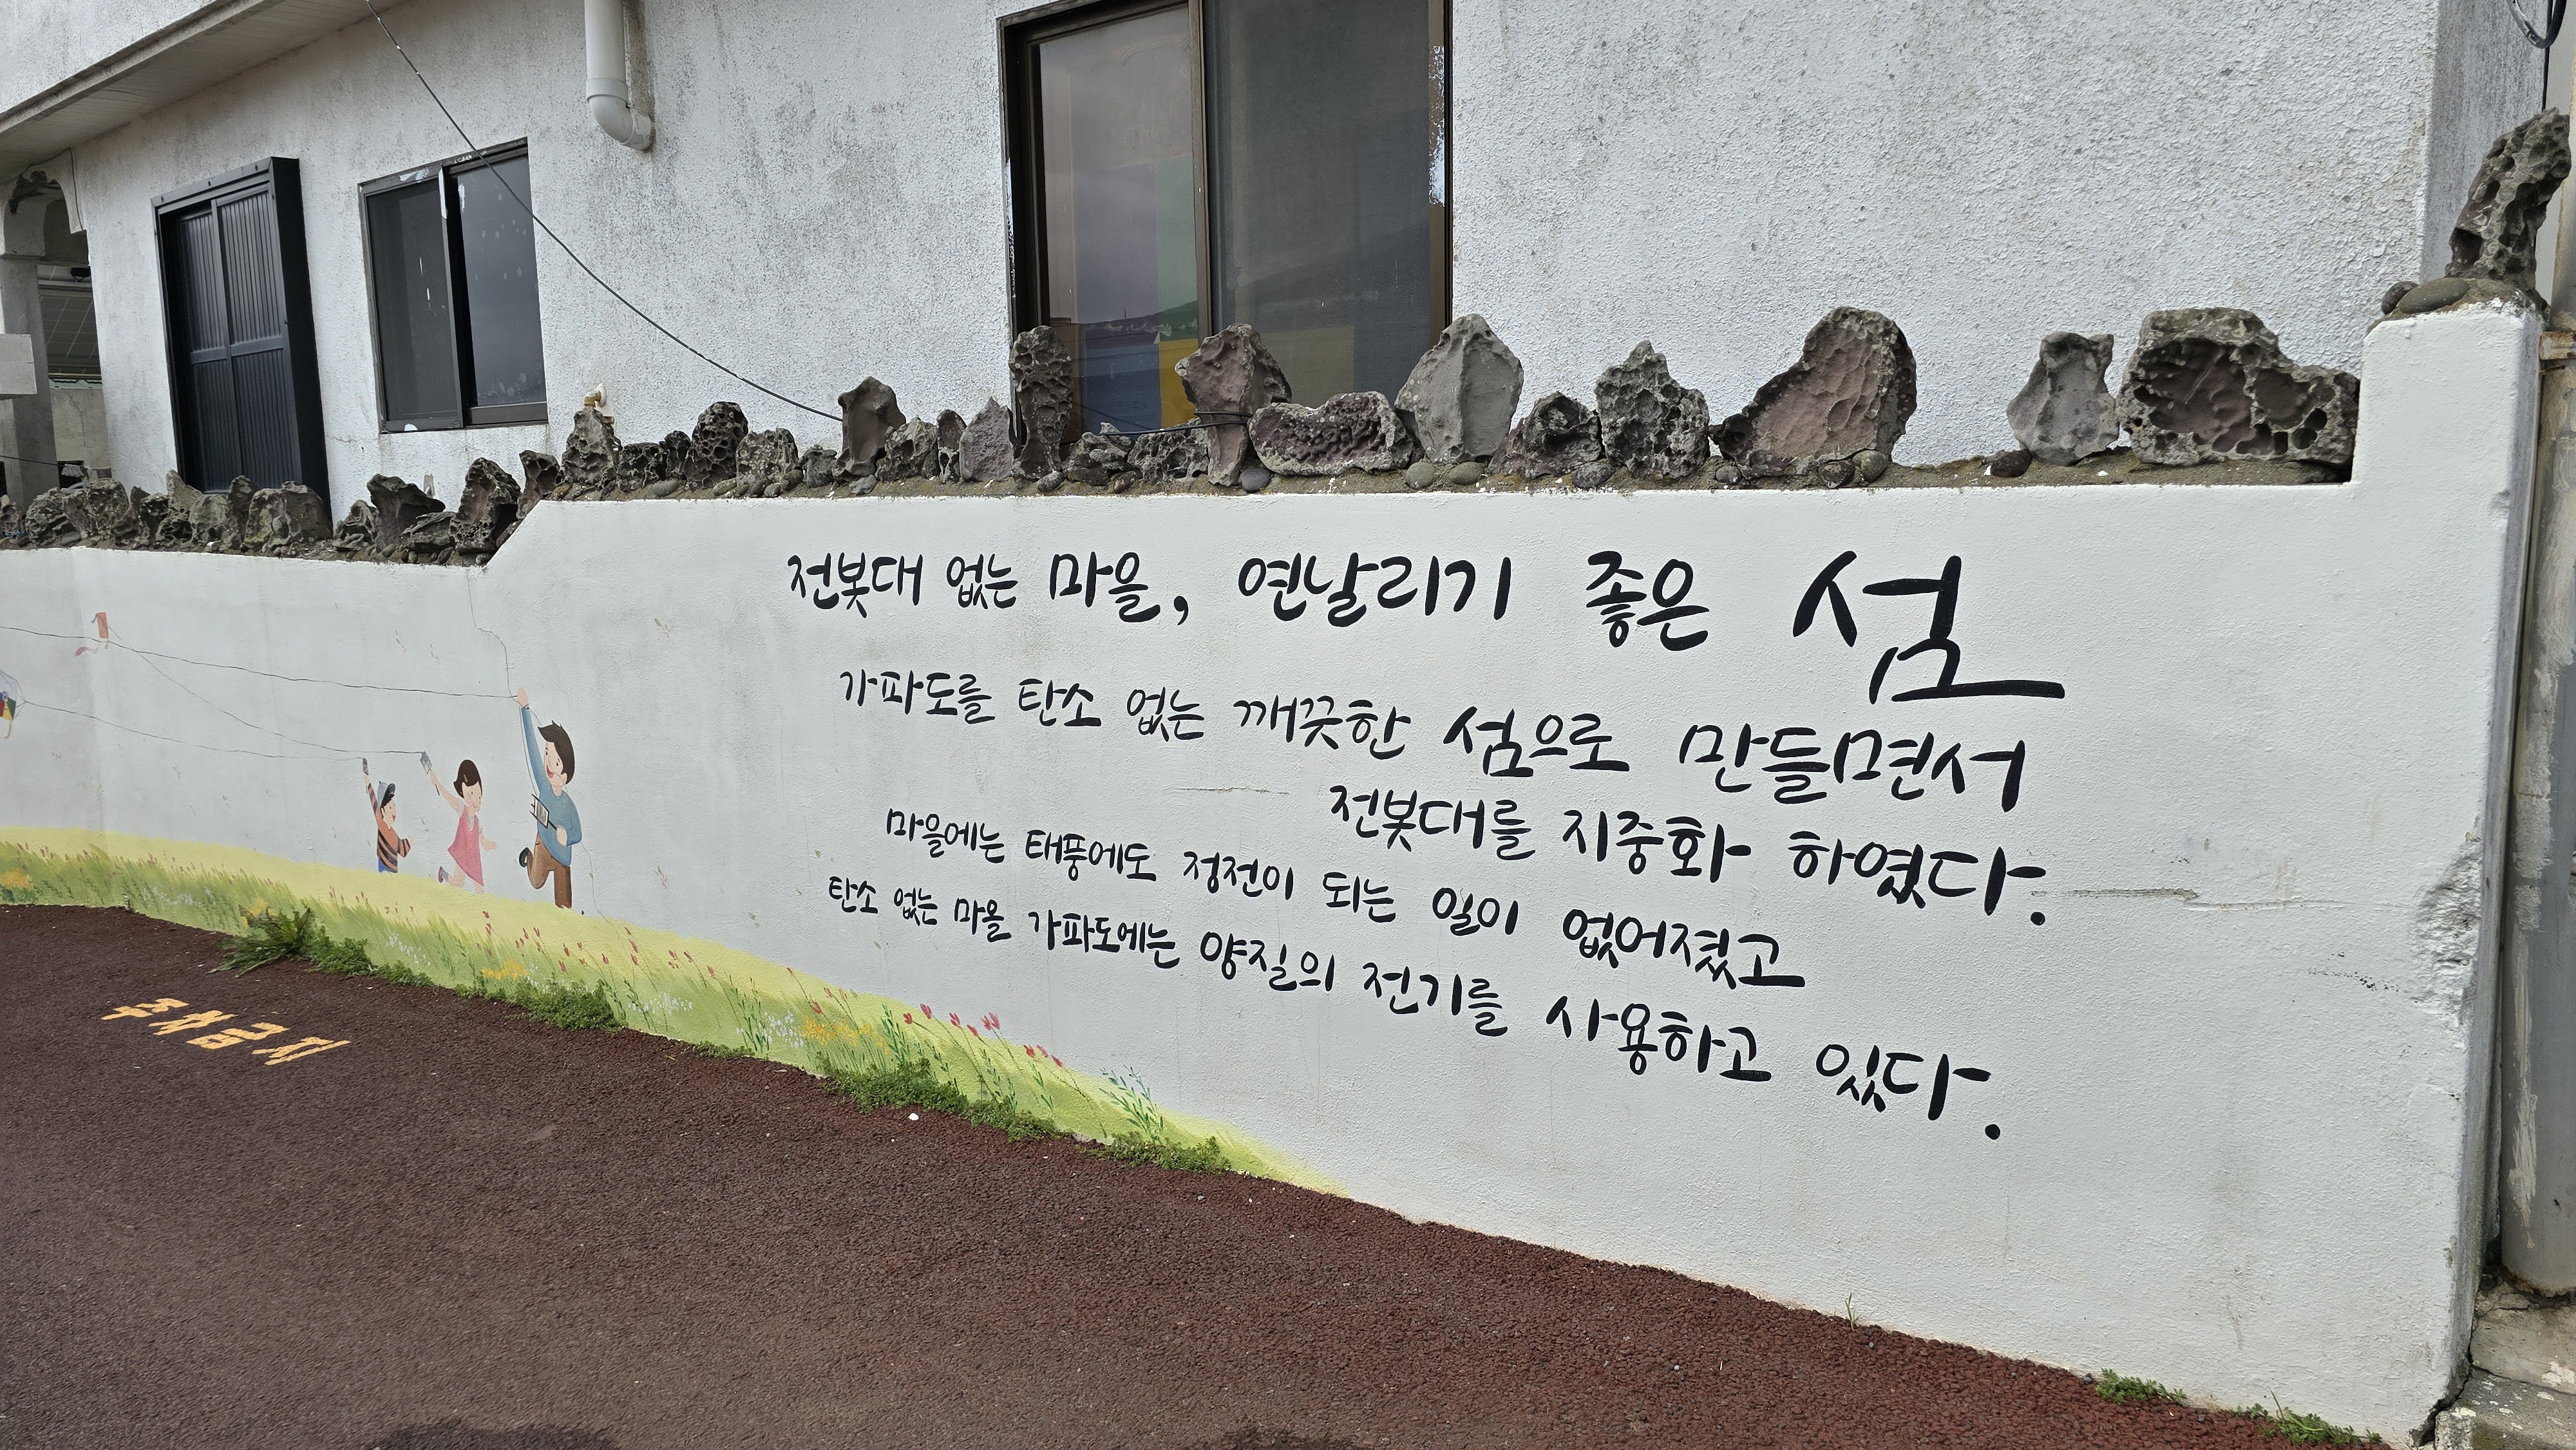 전봇대 없는 마을, 연날리기 좋은 섬
가파도를 탄소 없는 깨끗한 섬으로 만들면서
전봇대를 지중화 하였다.
마을에는 태풍에도 정전이 되는 일이 없어졌고
탄소 없는 마을 가파도에는 양질의 전기를 사용하고 있다.
주차금지